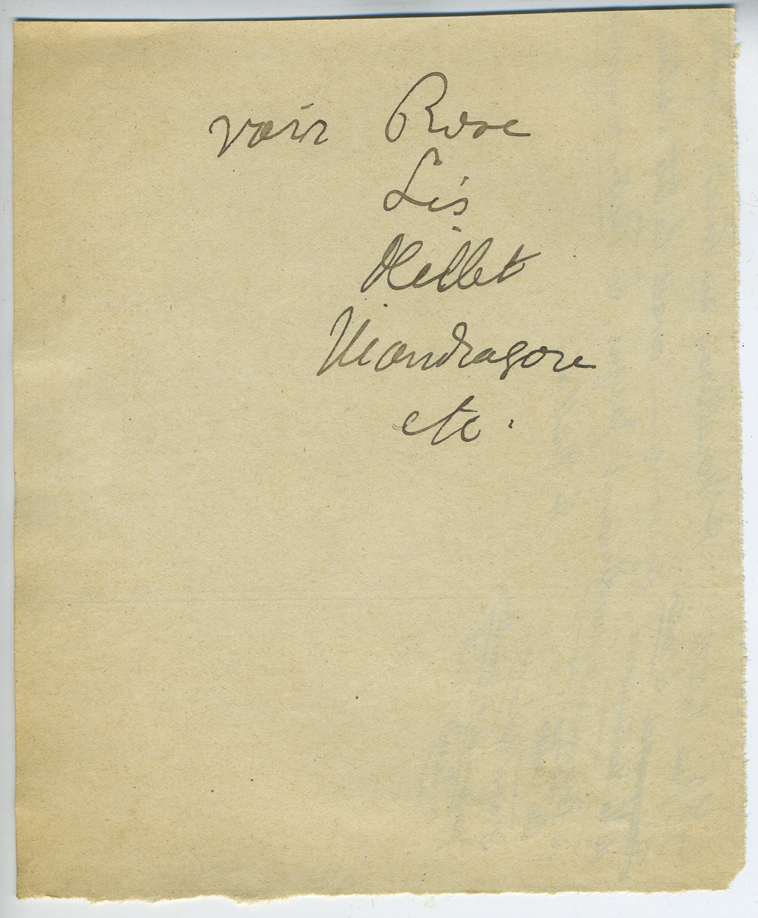 voir Rose
Lis
Millet
Mandragore
etc.